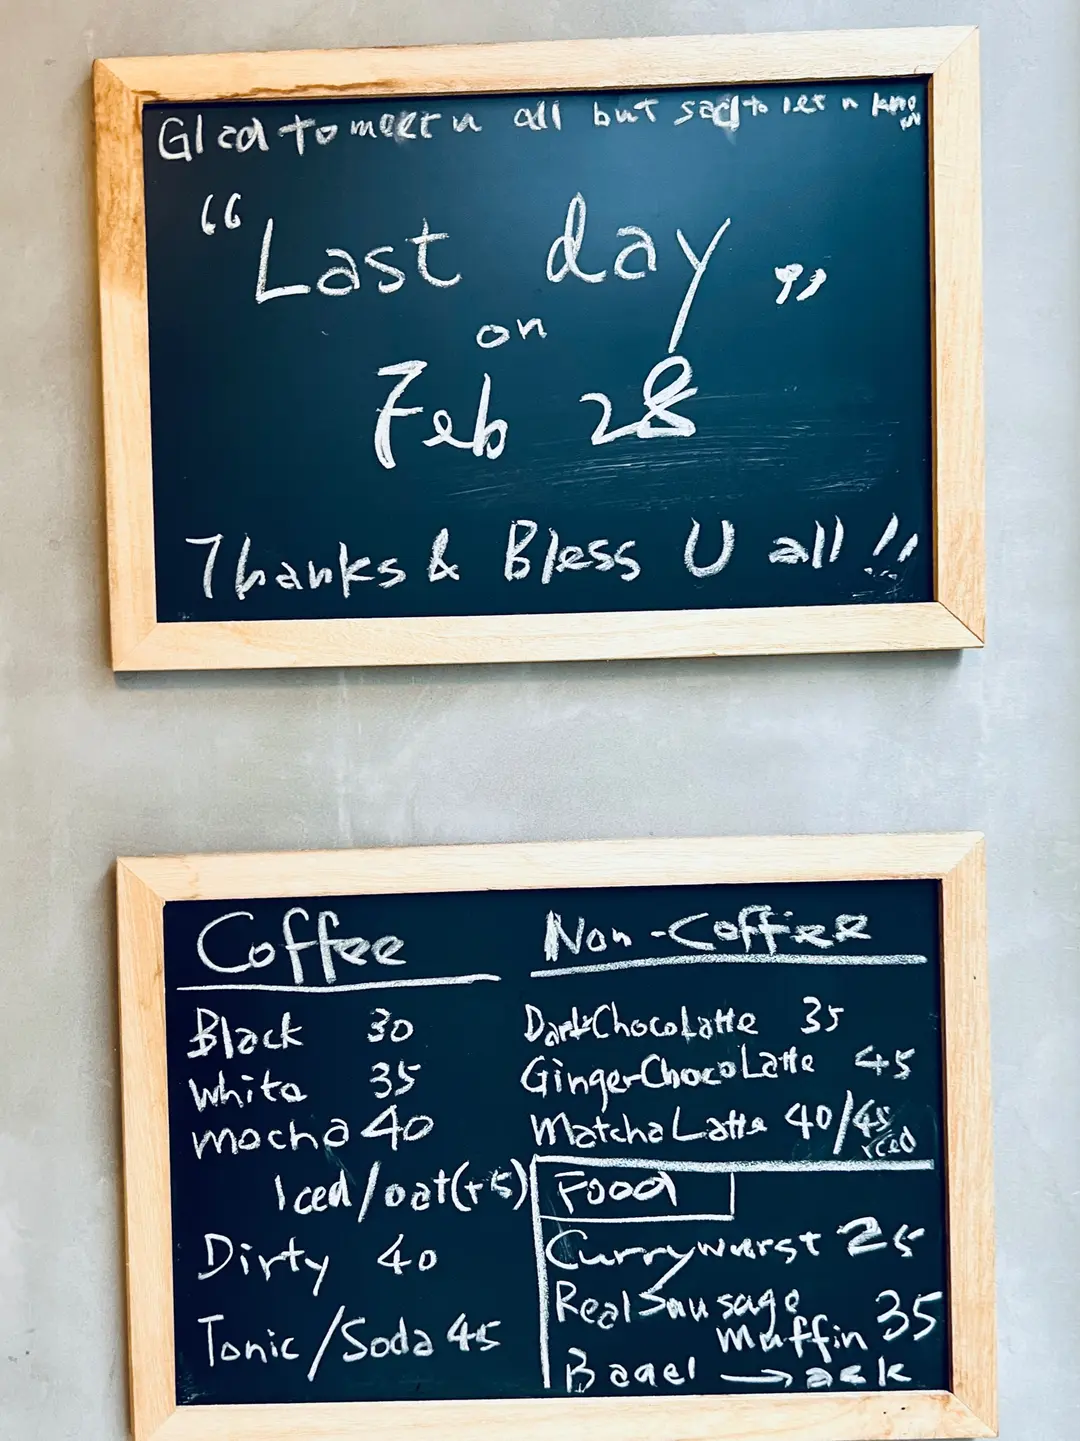 Glad to meet u all but sad to let u know
“Last day”
on
Feb 28
Thanks & Bless U all!!
Coffee
Black 30
White 35
mocha 40
Iced/oat(+5)
Dirty 40
Tonic/Soda 45
Non-Coffee
Dark ChocoLatte 35
Ginger ChocoLatte 45
Matcha Latte 40/45 iced
Food
Currywurst 25
Real Sausage
muffin 35
Bagel → ask